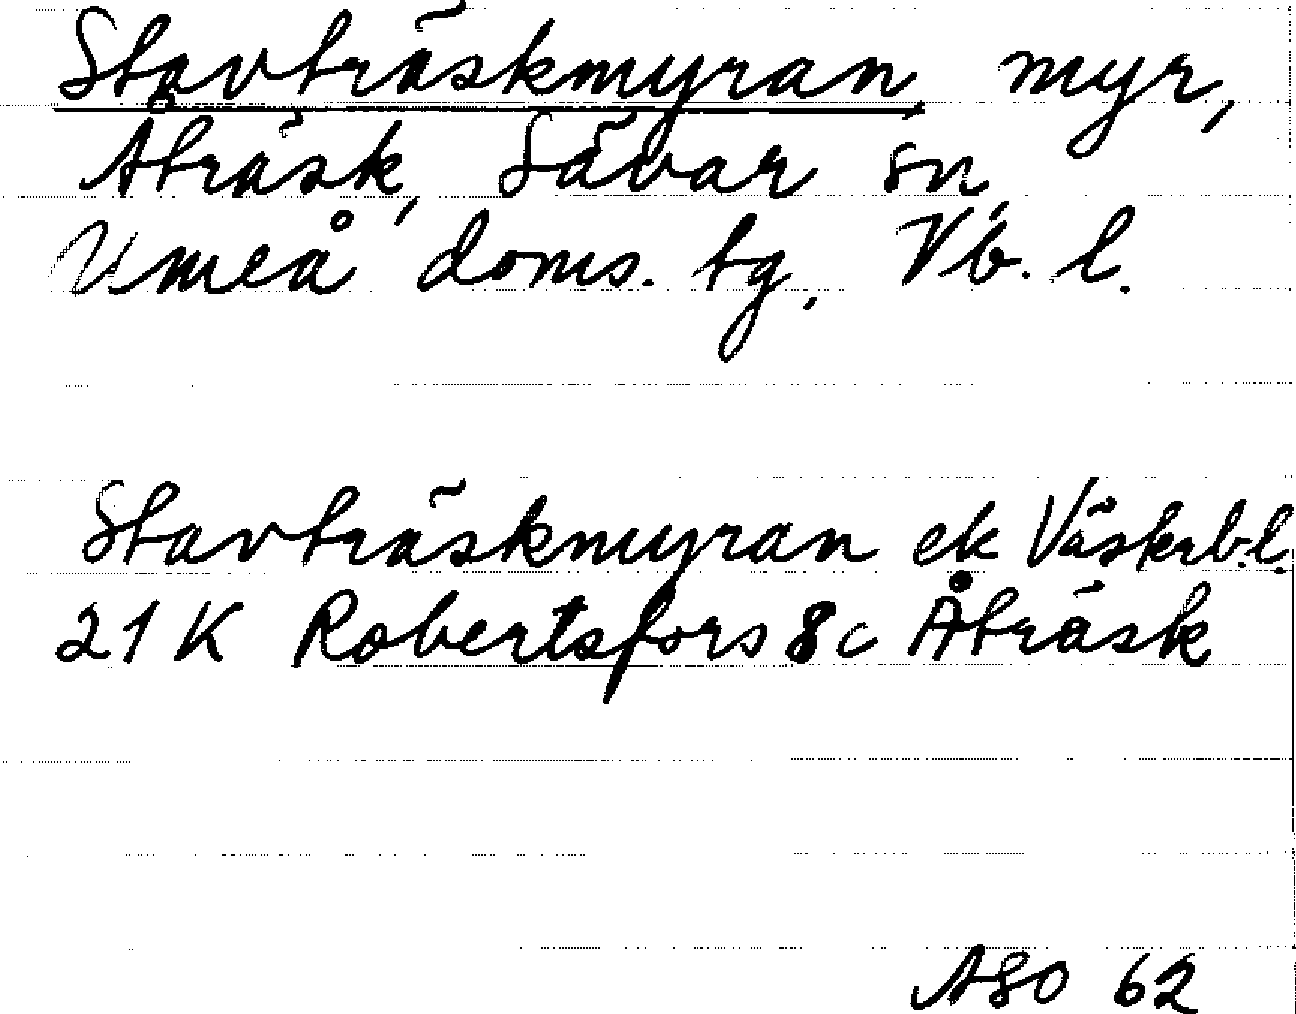 Stavträskmyran myr,
Åträsk, Sävar sn,
Umeå doms. tg, Vb. l.
Stavträskmyran ek Västerb.l.
21 K Robertsfors 8 c Åträsk
ASO 62